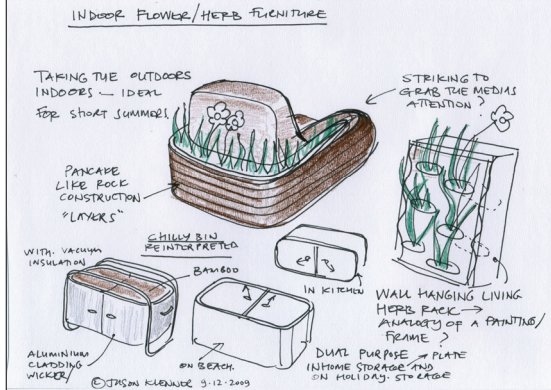 INDOOR FLOWER/HERB FURNITURE
TAKING THE OUTDOORS
INDOORS — IDEAL
FOR SHORT SUMMERS.
STRIKING TO
GRAB THE MEDIAS
ATTENTION ?
PANCAKE
LIKE ROCK
CONSTRUCTION
"LAYERS"
CHILLY BIN
REINTERPRETED
WITH VACUUM
INSULATION
BAMBOO
IN KITCHEN
WALL HANGING LIVING
HERB RACK →
ANALOGY OF A PAINTING/
FRAME ?
ALUMINIUM
CLADDING
WICKER/
ON BEACH.
DUAL PURPOSE → PLATE
IN HOME STORAGE AND
ON HOLIDAY. STORAGE
© JASON KLENNER 9.12.2009